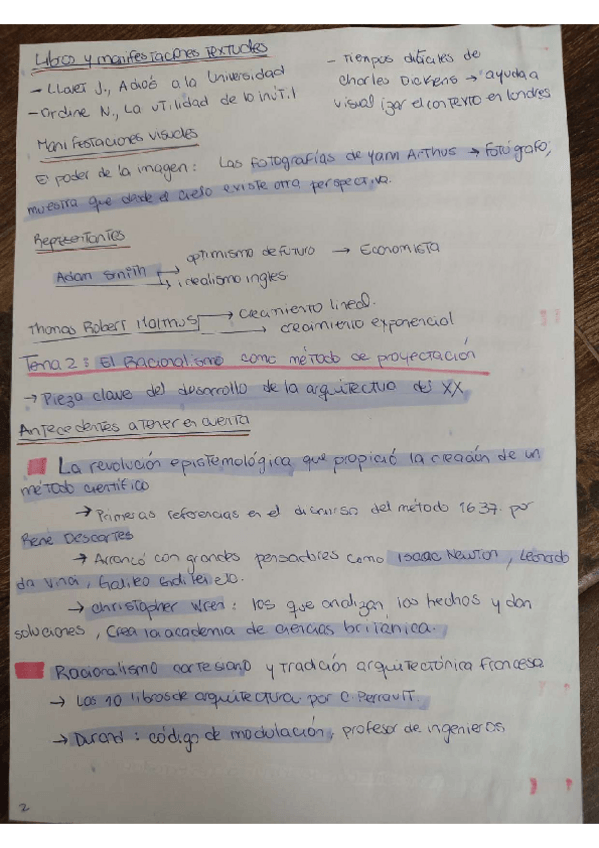 Libros y manifestaciones textuales
- Llovet J., Adiós a la Universidad
- Ordine N., La utilidad de lo inútil
- Tiempos difíciles de
Charles Dickens → ayuda a
visualizar el contexto en londres
Manifestaciones visuales
El poder de la imagen: Las fotografías de Yann Arthus → Fotógrafo,
muestra que desde el cielo existe otra perspectiva.
Representantes
Adam Smith → optimismo de futuro → Economista
→ idealismo ingles.
Thomas Robert Malmus → crecimiento lineal.
→ crecimiento exponencial
Tema 2: El Racionalismo como método de proyectación
→ Pieza clave del desarrollo de la arquitectura del XX
Antecedentes a tener en cuenta
La revolución epistemológica que propició la creación de un
método científico
→ Primeras referencias en el discurso del método 1637. por
René Descartes
→ Arrancó con grandes pensadores como Isaac Newton, Leonardo
da Vinci, Galileo Galilei etc.
→ Christopher Wren: los que analizan los hechos y dan
soluciones, Crea la academia de ciencias británica.
Racionalismo cartesiano y tradición arquitectónica francesa
→ Los 10 libros de arquitectura por C. Perrault.
→ Durand: código de modulación, profesor de ingenieros
2